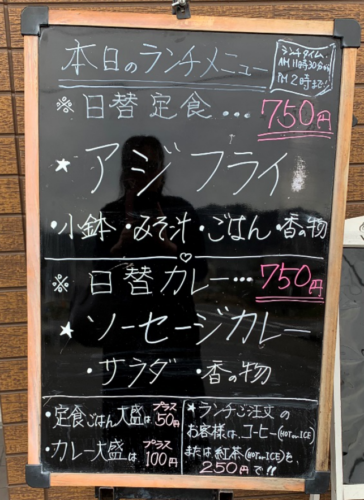 本日のランチメニュー
ランチタイム
AM 11時30分から
PM 2時まで!!
※日替定食… 750円
★アジフライ
・小鉢・みそ汁・ごはん・香の物
※日替カレー… 750円
★ソーセージカレー
・サラダ ・香の物
・定食ごはん大盛はプラス50円
・カレー大盛はプラス100円
★ランチご注文の
お客様は、コーヒー(HOT or ICE)
または紅茶(HOT or ICE)を、
250円で!!